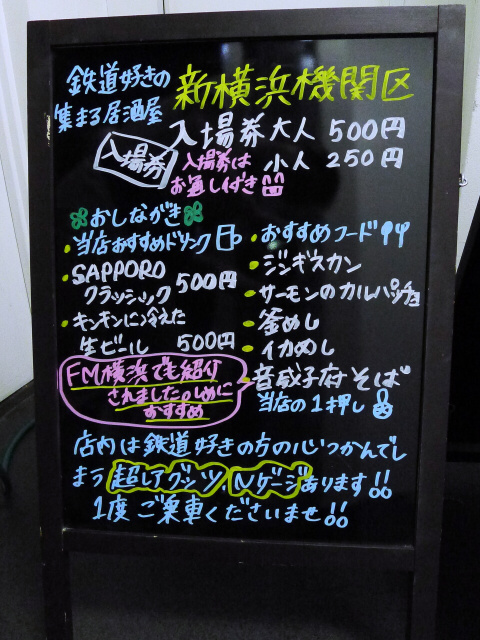 鉄道好きの
集まる居酒屋
新横浜機関区
入場券 大人 500円
入場券
入場券は
お通し付き
小人 250円
おしながき
・当店おすすめドリンク
・SAPPORO
クラッシック 500円
・キンキンに冷えた
生ビール 500円
・おすすめフード
・ジンギスカン
・サーモンのカルパッチョ
・釜めし
・イカめし
・音威子府そば
当店の1押し
FM横浜でも紹介
されました。しめに
おすすめ
店内は鉄道好きの方の心つかんでし
まう超レアグッツ、Nゲージあります!!
1度ご乗車くださいませ!!